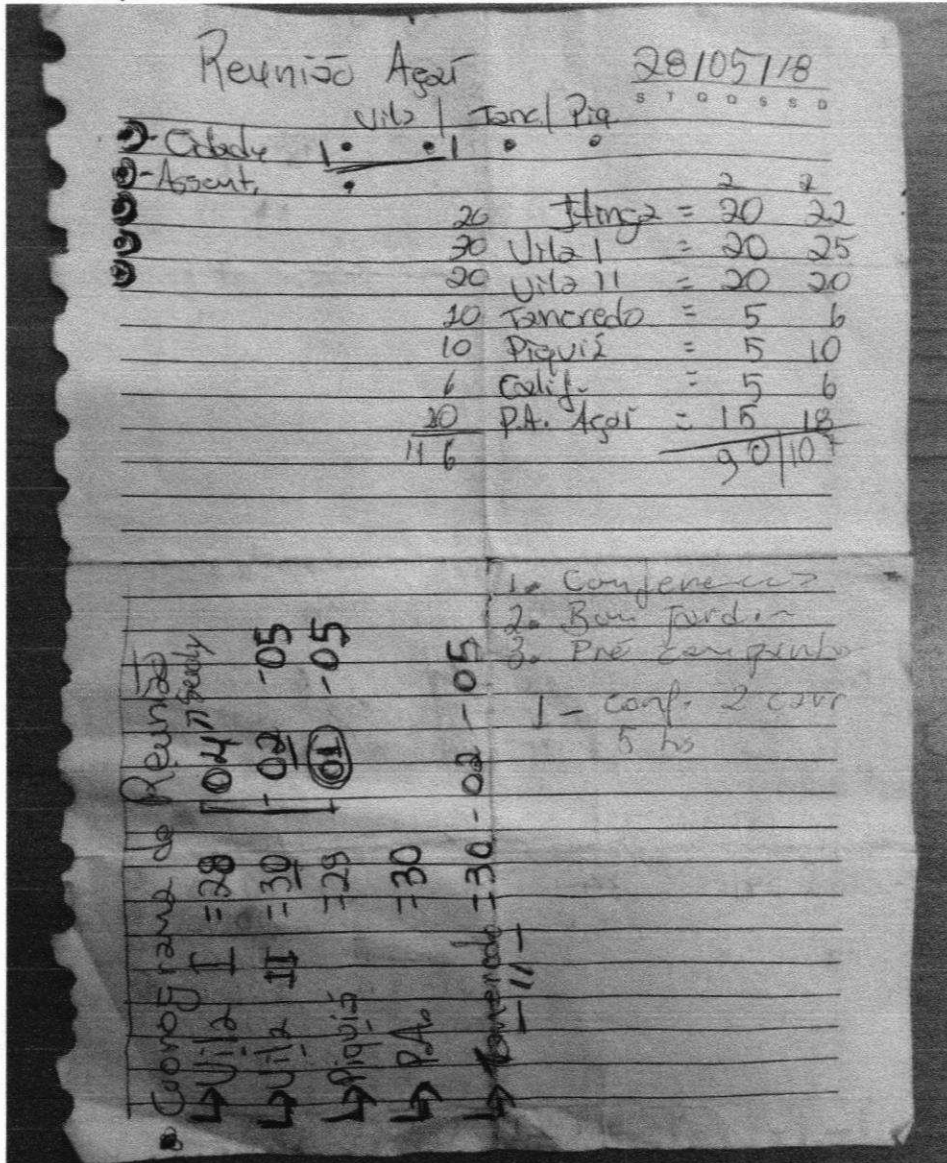 Reunião Açaí 28/05/18
S T Q Q S S D
Vila | Tanc/ Piq.
- Cidade
- Assent.
2 2
20 Itinga = 20 22
30 Vila I = 20 25
20 Vila II = 20 20
10 Tancredo = 5 6
10 Piquiá = 5 10
6 Calif. = 5 6
20 P.A. Açaí = 15 18
116 90 | 107
1. Conferencia
2. Bom Jardim
3. Pré
1 - conf. 2
5 hs
Cronograma de Reunião
Vila I = 28 04
Vila II = 30 - 02 - 05
Piquiá = 29 01 - 05
P.A. = 30
Tancredo = 30 - 02 - 05
- 11 -